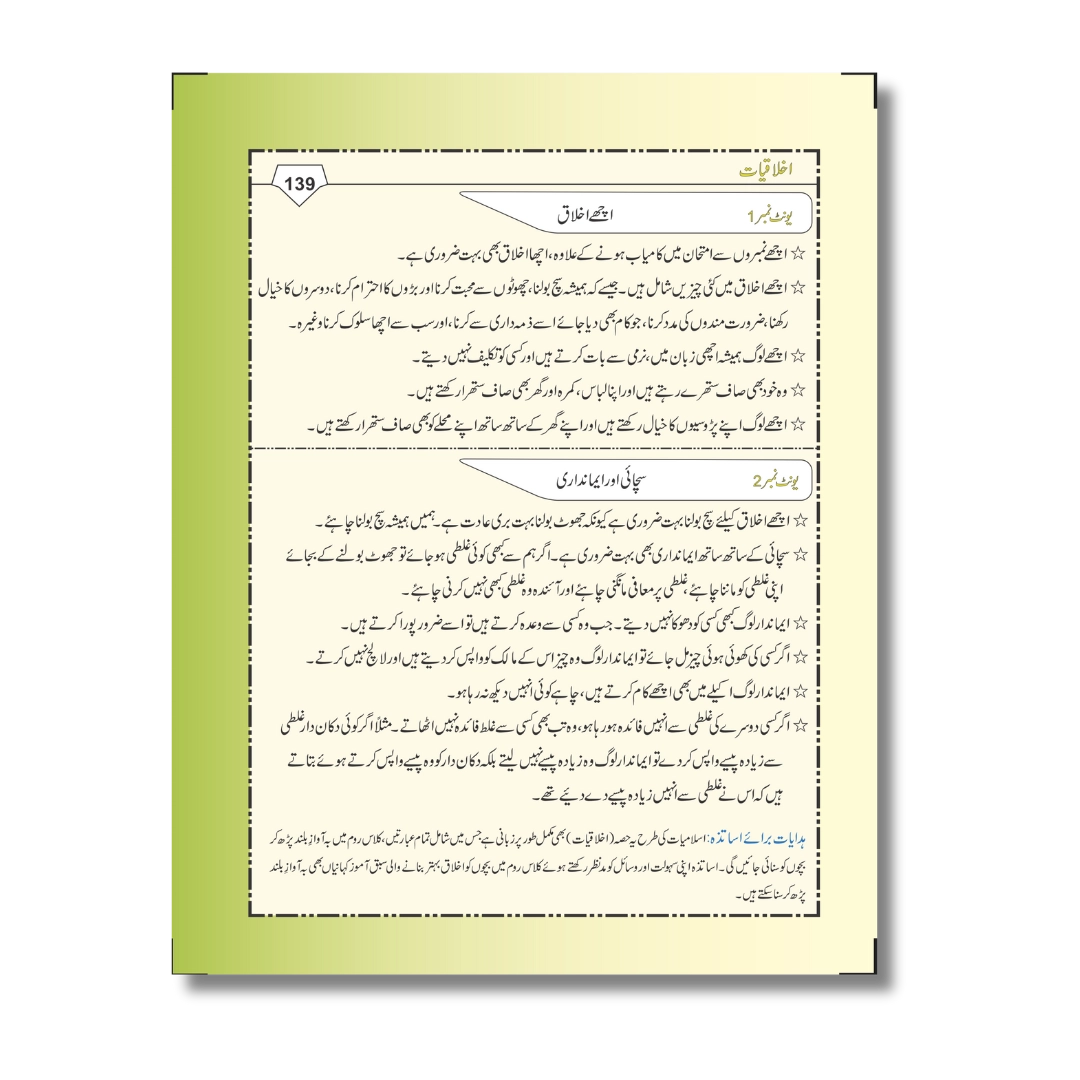 اخلاقیات
139
یونٹ نمبر 1 اچھے اخلاق
☆ اچھے نمبروں سے امتحان میں کامیاب ہونے کے علاوہ، اچھا اخلاق بھی بہت ضروری ہے۔
☆ اچھے اخلاق میں کئی چیزیں شامل ہیں۔ جیسے کہ ہمیشہ سچ بولنا، چھوٹوں سے محبت کرنا اور بڑوں کا احترام کرنا، دوسروں کا خیال
رکھنا، ضرورت مندوں کی مدد کرنا، جو کام بھی دیا جائے اسے ذمہ داری سے کرنا، اور سب سے اچھا سلوک کرنا وغیرہ۔
☆ اچھے لوگ ہمیشہ اچھی زبان میں، نرمی سے بات کرتے ہیں اور کسی کو تکلیف نہیں دیتے۔
☆ وہ خود بھی صاف ستھرے رہتے ہیں اور اپنا لباس، کمرہ اور گھر بھی صاف ستھرا رکھتے ہیں۔
☆ اچھے لوگ اپنے پڑوسیوں کا خیال رکھتے ہیں اور اپنے گھر کے ساتھ ساتھ اپنے محلے کو بھی صاف ستھرا رکھتے ہیں۔
یونٹ نمبر 2 سچائی اور ایمانداری
☆ اچھے اخلاق کیلئے سچ بولنا بہت ضروری ہے کیونکہ جھوٹ بولنا بہت بری عادت ہے۔ ہمیں ہمیشہ سچ بولنا چاہئے۔
☆ سچائی کے ساتھ ساتھ ایمانداری بھی بہت ضروری ہے۔ اگر ہم سے کبھی کوئی غلطی ہو جائے تو جھوٹ بولنے کے بجائے
اپنی غلطی کو ماننا چاہئے، غلطی پر معافی مانگنی چاہئے اور آئندہ وہ غلطی کبھی نہیں کرنی چاہئے۔
☆ ایماندار لوگ کبھی کسی کو دھوکا نہیں دیتے۔ جب وہ کسی سے وعدہ کرتے ہیں تو اسے ضرور پورا کرتے ہیں۔
☆ اگر کسی کی کھوئی ہوئی چیز مل جائے تو ایماندار لوگ وہ چیز اس کے مالک کو واپس کر دیتے ہیں اور لالچ نہیں کرتے۔
☆ ایماندار لوگ اکیلے میں بھی اچھے کام کرتے ہیں، چاہے کوئی انہیں دیکھ نہ رہا ہو۔
☆ اگر کسی دوسرے کی غلطی سے انہیں فائدہ ہو رہا ہو، وہ تب بھی کسی سے غلط فائدہ نہیں اٹھاتے۔ مثلاً اگر کوئی دکان دار غلطی
سے زیادہ پیسے واپس کر دے تو ایماندار لوگ وہ زیادہ پیسے نہیں لیتے بلکہ دکان دار کو وہ پیسے واپس کرتے ہوئے بتاتے
ہیں کہ اس نے غلطی سے انہیں زیادہ پیسے دے دئیے تھے۔
ہدایات برائے اساتذہ: اسلامیات کی طرح یہ حصہ (اخلاقیات) بھی مکمل طور پر زبانی ہے جس میں شامل تمام عبارتیں، کلاس روم میں بہ آوازِ بلند پڑھ کر
بچوں کو سنائی جائیں گی۔ اساتذہ اپنی سہولت اور وسائل کو مدنظر رکھتے ہوئے کلاس روم میں بچوں کو اخلاق بہتر بنانے والی سبق آموز کہانیاں بھی بہ آوازِ بلند
پڑھ کر سنا سکتے ہیں۔